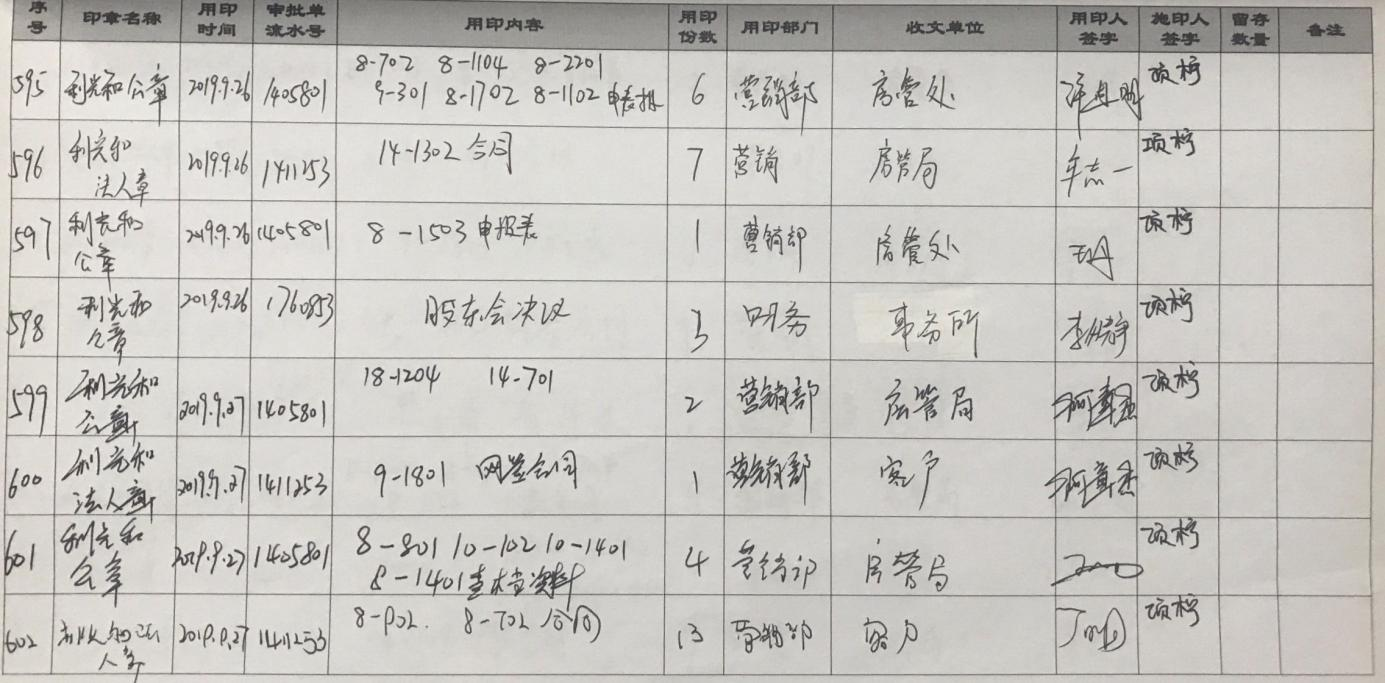 序号 印章名称 用印时间 审批单流水号 用印内容 用印份数 用印部门 收文单位 用印人签字 施印人签字 留存数量 备注
595 利光和公章 2019.9.26 1405801 8-702 8-1104 8-2201 9-301 8-1702 8-1102 申表报 6 营销部 房管处 项柠
596 利光和法人章 2019.9.26 1411253 14-1302 合同 7 营销 房管局 车志一 项柠
597 利光和公章 2019.9.26 1405801 8-1503 申报表 1 营销部 房管处 项柠
598 利光和公章 2019.9.26 1760853 股东会决议 3 财务 事务所 项柠
599 利光和公章 2019.9.27 1405801 18-1204 14-701 2 营销部 房管局 项柠
600 利光和法人章 2019.9.27 1411253 9-1801 网签合同 1 营销部 客户 项柠
601 利光和公章 2019.9.27 1405801 8-801 10-102 10-1401 8-1401 查档资料 4 营销部 房管局 项柠
602 法人章 2019.9.27 1411253 8-902. 8-702 合同 13 营销部 客户 项柠